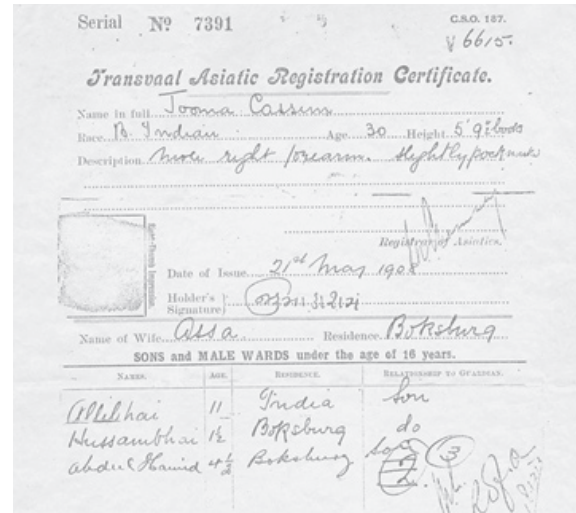 Serial Nº 7391
C.S.O. 187.
6615.
Transvaal Asiatic Registration Certificate.
Name in full Jooma Cassim
Race B. Indian Age 30 Height 5' 9"
Description Mole right forearm. Slightly pock
Registrar of Asiatics.
Date of Issue 21st May 1908
Holder's Signature
Name of Wife Assa Residence Boksburg
SONS and MALE WARDS under the age of 16 years.
NAMES. AGE. RESIDENCE. RELATIONSHIP TO GUARDIAN.
Allibhai 11 India Son
Hussambhai 1½ Boksburg do
Abdul Hamid 4½ Boksburg Son
3